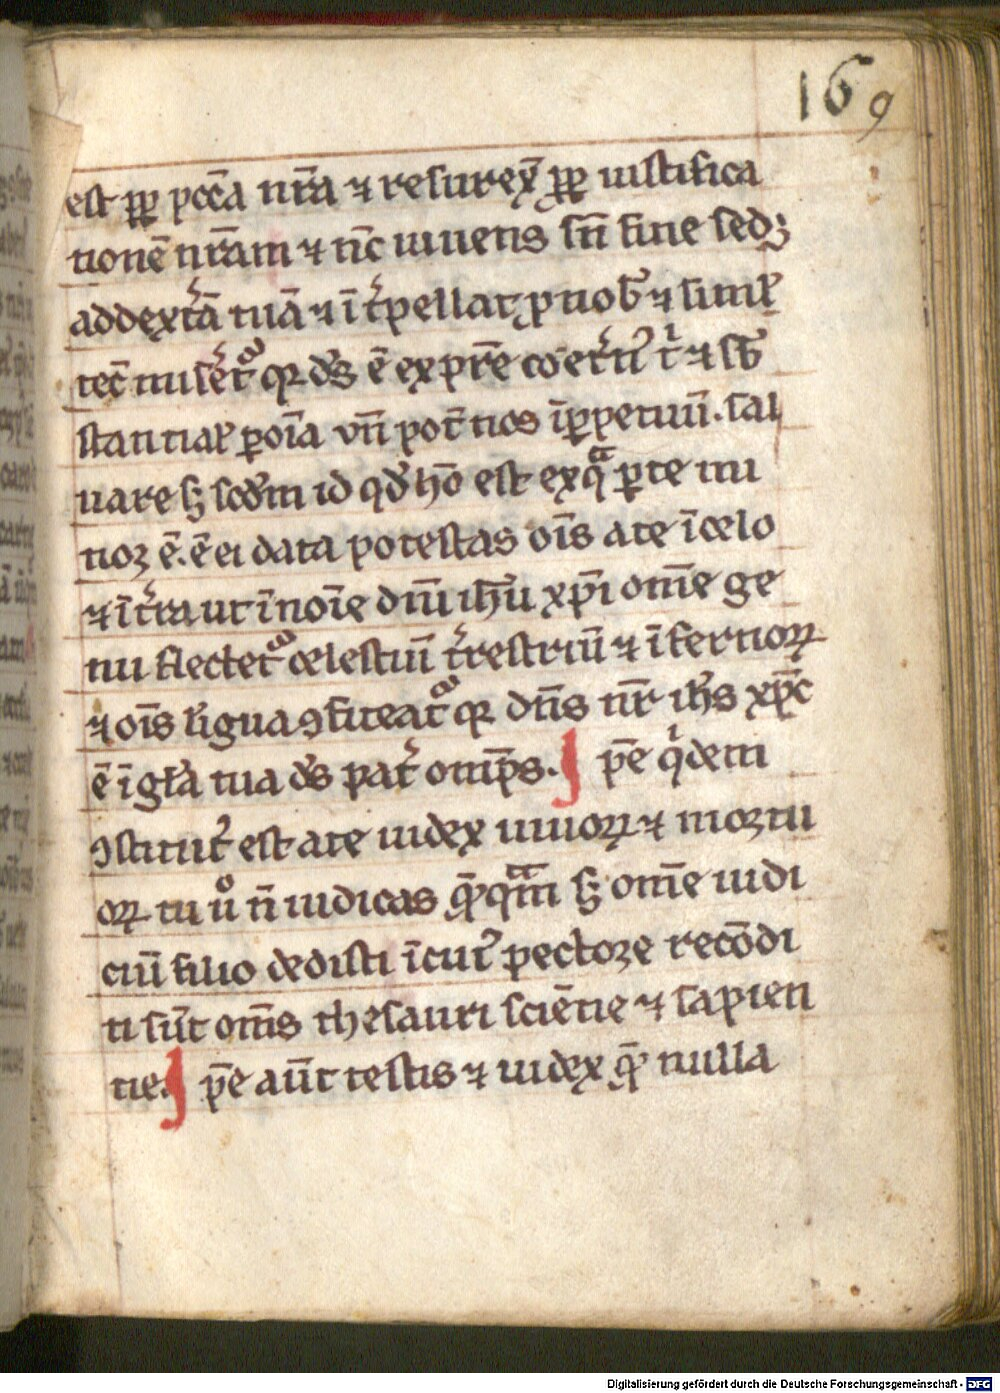 169
est ꝓp pccā nr̄a ⁊ resurex̄ ꝓp iustifica
tionē nr̄am ⁊ nc̄ uiuens sn̄ fine sedꝫ
addext̄ā tuā ⁊ īt̄pellat ꝓ nob̄ ⁊ simĺ
tec̄ miseret̄ qꝛ ds̄ ē ex pr̄e coet̄n᷒ t̄ ⁊ sb̄
stantiaĺ ꝑ oīa vn̄ pot̄ nos īꝑpetuū. sal
uare sꝫ scd̄m id qd̄ hō est ex qᵃ ꝑte mi
noꝛ ē. ē ei data potestas oīs a te ī celo
⁊ īt̄ra ut ī noīe dn̄i ih̄u xp̄i om̄e ge
nu flectet̄ celestiuī t̄restriū ⁊ īfernoꝝ
⁊ oīs līgua ꝯfiteat̄ qꝛ dn̄s nr̄ ih̄s xp̄c
ē ī gl̄a tua ds̄ pat̄ om̄ps. I pē qⁱdem
ꝯstitut᷒ est a te iudex uiuoꝝ ⁊ moꝛtu
oꝝ tu uͦ n̄ iudicas qēqᵃm sꝫ om̄e iudi
ciū filio dedisti īcui᷒ pectoꝛe recōdi
ti sūt om̄s thesauri sciētie ⁊ sapien
tie. I pē aūt testis ⁊ iudex qē nulla
Digitalisierung gefördert durch die Deutsche Forschungsgemeinschaft - DFG